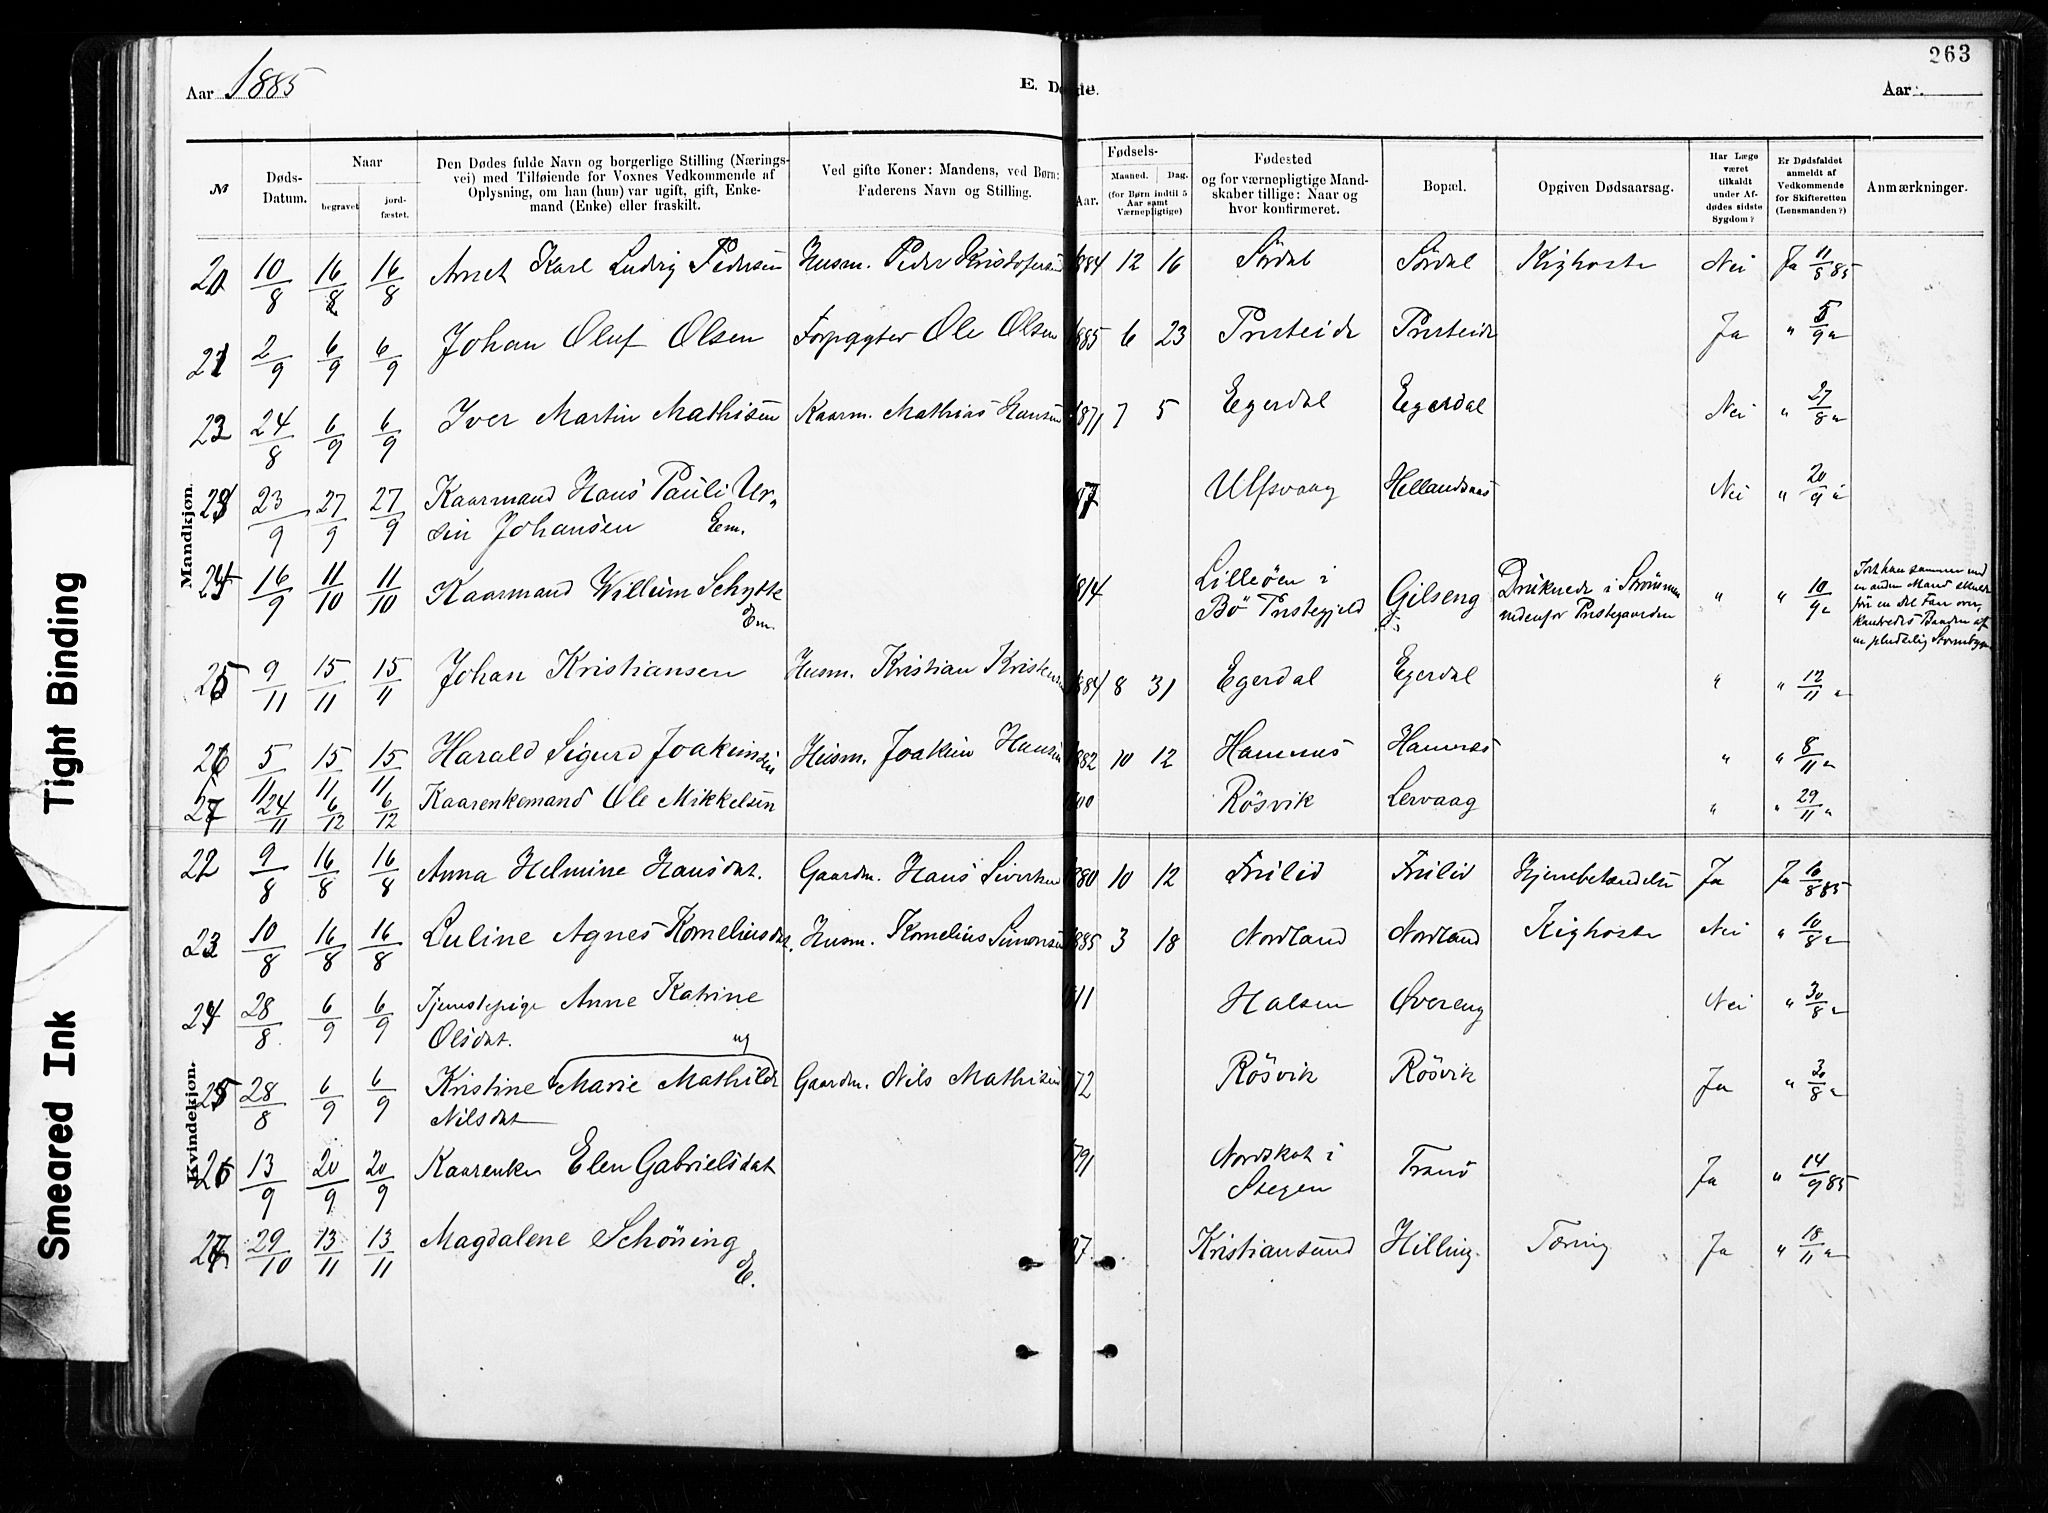 263
Aar 1885
E. Døde.
Aar
№ Døds-Datum. Naar begravet jord-fæstet. Den Dødes fulde Navn og borgerlige Stilling (Nærings-vei) med Tilføiende for Voxnes Vedkommende af Oplysning, om han (hun) var ugift, gift, Enke-mand (Enke) eller fraskilt. Ved gifte Koner: Mandens, ved Børn: Faderens Navn og Stilling. Fødsels- Aar. Maaned. Dag. (for Børn indtil 5 Aar samt Værnepligtige) Fødested og for værnepligtige Mand-skaber tillige: Naar og hvor konfirmeret. Bopæl. Opgiven Dødsaarsag. Har Læge været tilkaldt under Af-dødes sidste Sygdom? Er Dødsfaldet anmeldt af Vedkommende for Skifteretten (Lensmanden?) Anmærkninger.
Mandkjøn.
20 10/8 16/8 16/8 Arnet Karl Ludvig Pedersen Husm. Peder Kristofersen 1884 12 16 Sørdal Sørdal Kighoste Nei Ja 11/8 85
21 2/9 6/9 6/9 Johan Oluf Olsen Forpagter Ole Olsen 1885 6 23 Presteide Presteide Ja " 5/9 "
22 24/8 6/9 6/9 Iver Martin Mathisen Kaarm. Mathias Hansen 1871 7 5 Egerdal Egerdal Nei " 27/8 "
23 23/9 27/9 27/9 Kaarmand Hans Pauli Ur- Ulfsvaag Hellandsnes Nei " 20/9 "
sin Johansen Em.
24 16/9 11/10 11/10 Kaarmand Willum Schytte Em. 1814 Lilleøen i Bø Prestegjeld Gilseng Druknede i Strømmen nedenfor Prestegaarden " " 10/9 "
25 9/11 15/11 15/11 Johan Kristiansen Husm. Kristian Kristensen 1884 8 31 Egerdal Egerdal " " 12/11 "
26 5/11 15/11 15/11 Harald Sigurd Joakimsen Husm. Joakim Hansen 1882 10 12 Hamnes Hamnes " " 8/11 "
27 24/11 6/12 6/12 Kaarenkemand Ole Mikkelsen Røsvik Lervaag " " 29/11 "
Kvindekjøn.
22 9/8 16/8 16/8 Anna Helmine Hansdat. Gaardm. Hans Sivertsen 1880 10 12 Frilid Frilid Hjernebetændelse Ja Ja 16/8 85
23 10/8 16/8 16/8 Luline Agnes Korneliusdat. Husm. Kornelius Simonsen 1885 3 18 Nordland Nordland Kighoste Nei " 10/8 "
24 28/8 6/9 6/9 Tjenestepige Anne Katrine 11 Halsen Øvereng Nei " 30/8 "
Olsdat. ug
25 28/8 6/9 6/9 Kristine Marie Mathilde Gaardm. Nils Mathisen 72 Røsvik Røsvik Ja " 30/8 "
Nilsdat
26 13/9 20/9 20/9 Kaarenke Elen Gabrielsdat 1791 Nordskot i Stegen Tranø Ja " 14/9 85
27 29/10 13/11 13/11 Magdalene Schøning E. Kristiansund Hilling. Tæring Ja " 18/11 "
Tight Binding
Smeared Ink